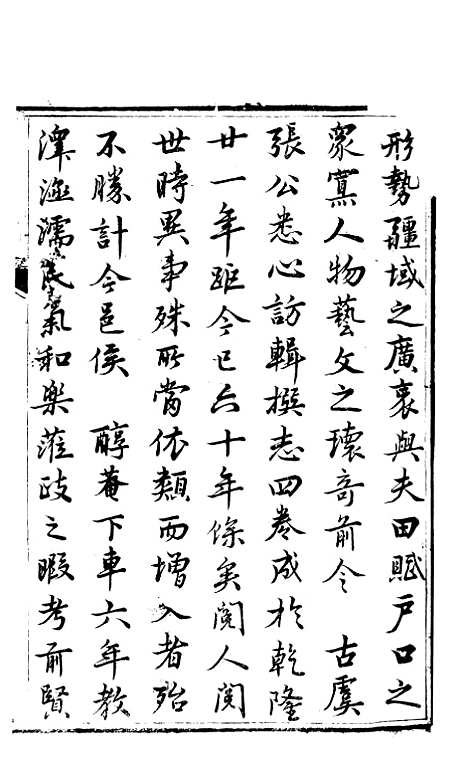 形勢疆域之廣袤與夫田賦戸口之
衆寡人物藝文之瓌奇前令　古虞
張公悉心訪輯撰志四卷成於乾隆
廿一年距今已六十年餘矣閱人閱
世時異事殊所當依類而增入者殆
不勝計今邑侯　醇菴下車六年教
澤涵濡民氣和樂蒞政之暇考前賢